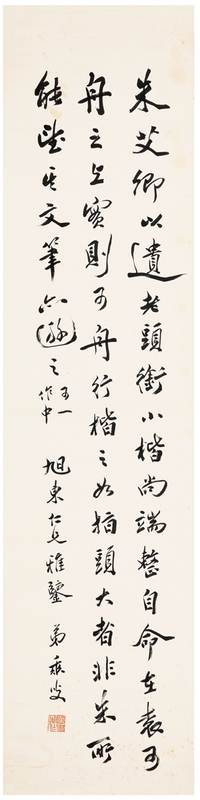 朱艾卿以遺老頭銜小楷尚端整自命在袁可
舟之上實則可舟行楷之如指頭大者非朱所
能望其文筆亦遜之可一作中 旭東仁兄雅鑒 弟叟